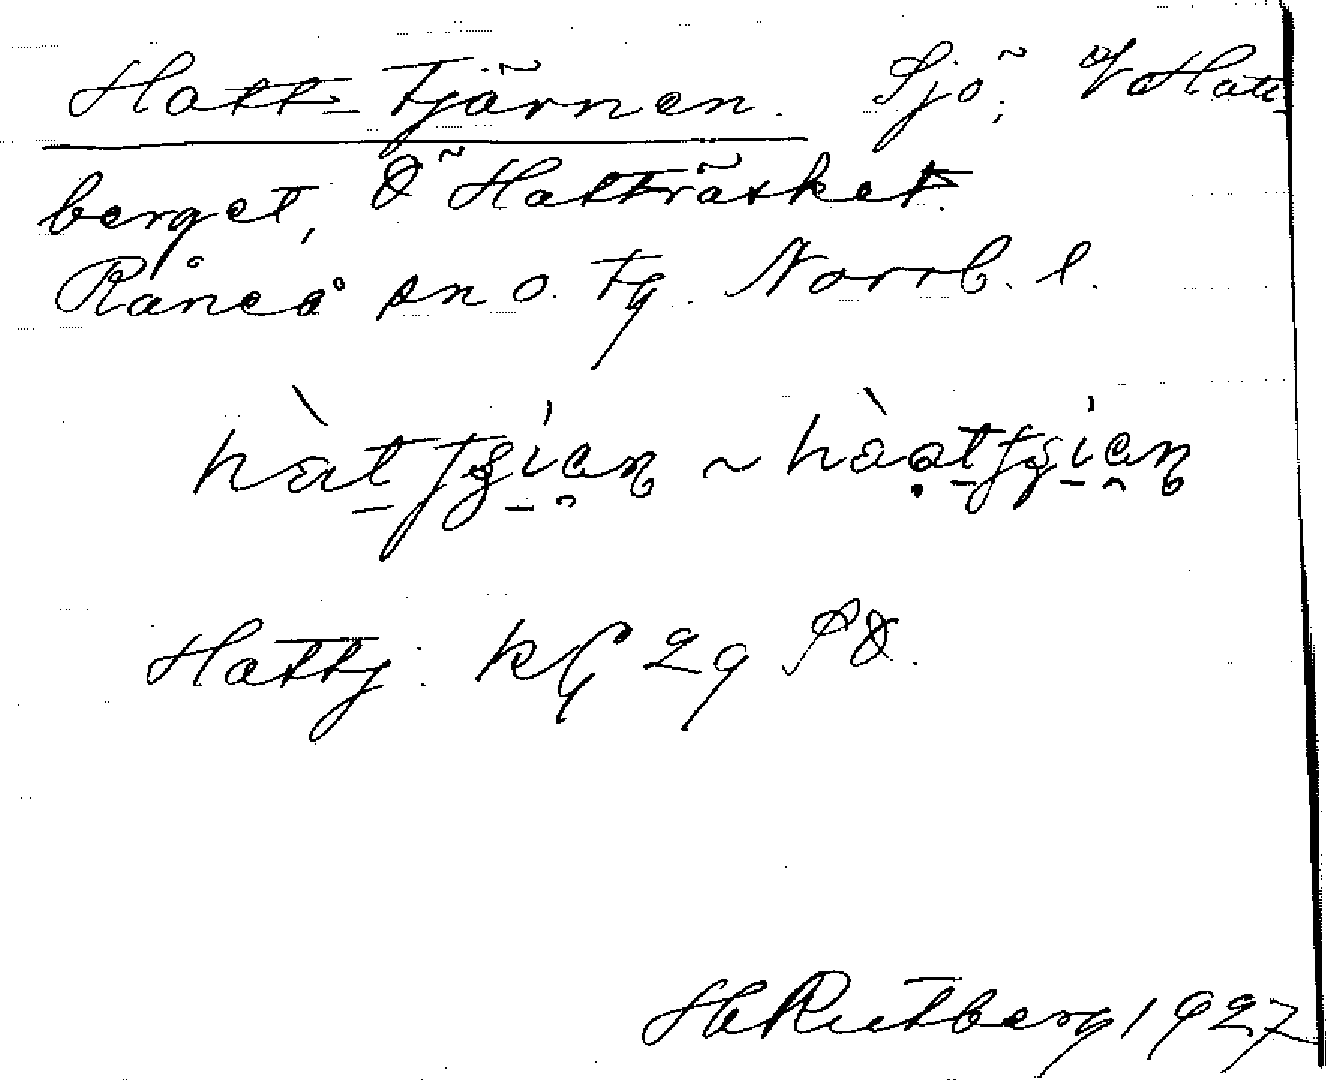 Hatt-Tjärnen. Sjö; V Hatt-
berget, Ö Hatträsket.
Råneå sn o. tg. Norrb. l.
Hattj: kG 29 SO.
HRutberg 1927